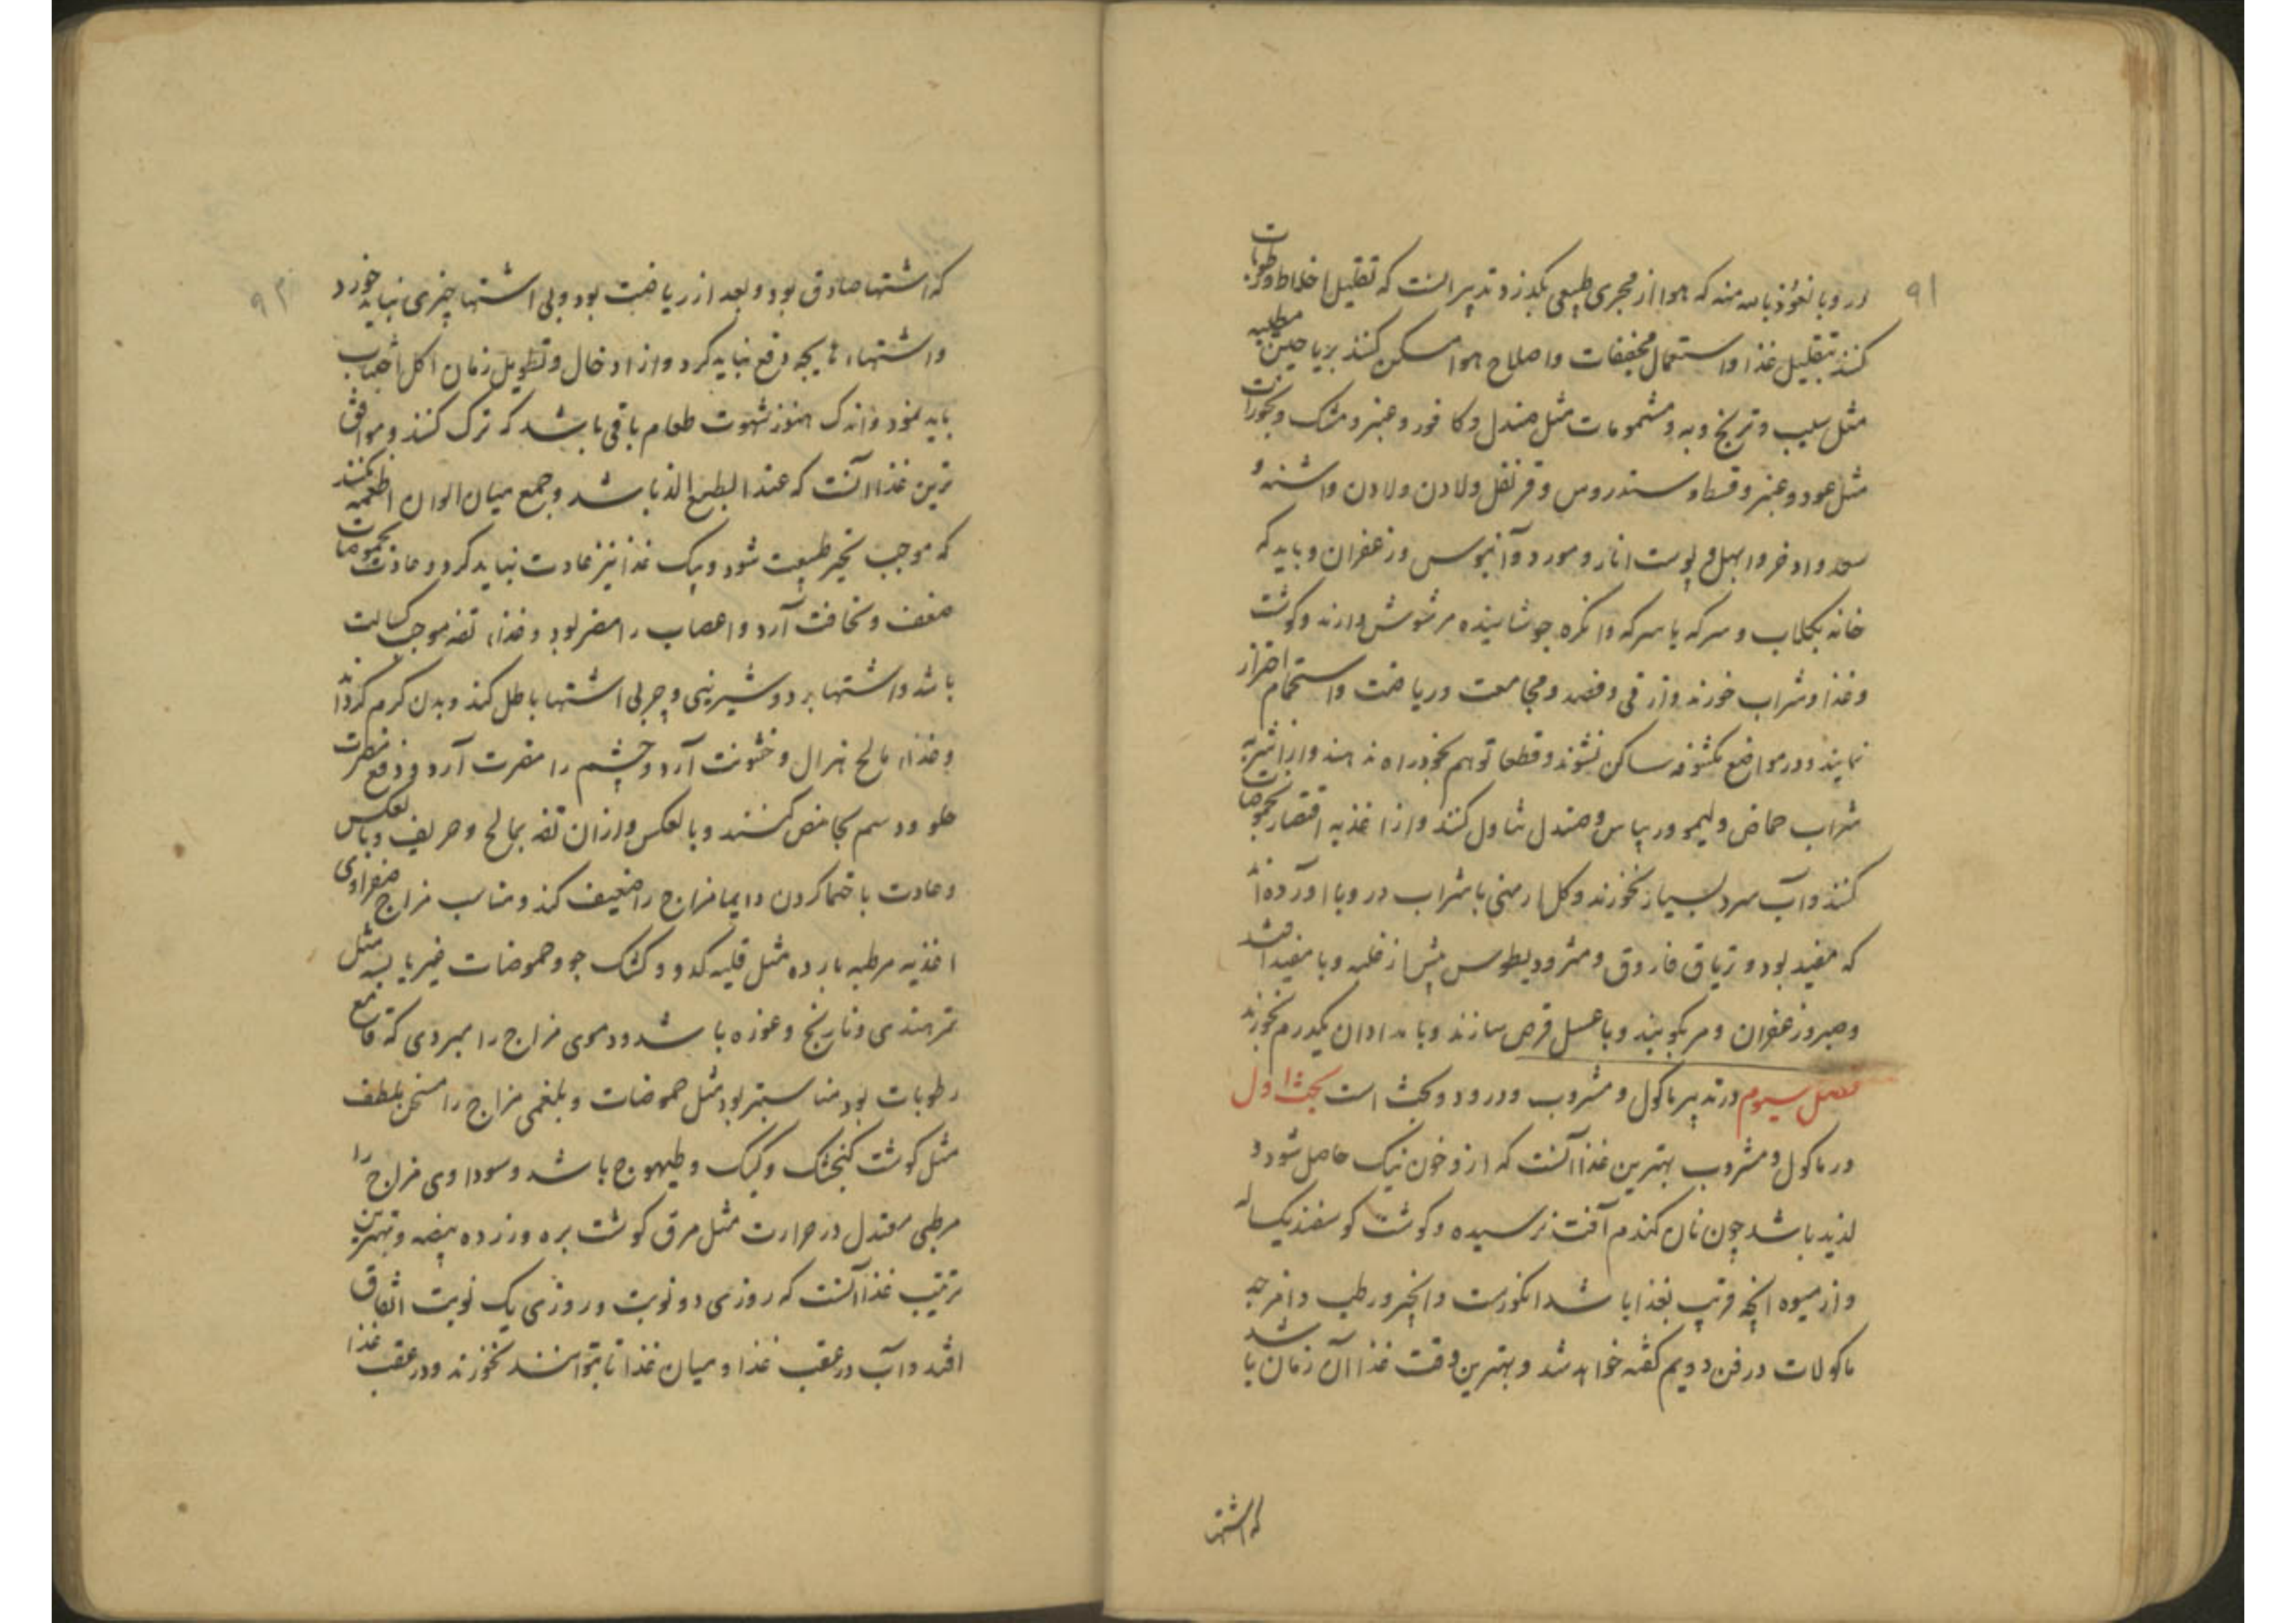 ۹۱
در وبا نعوذ بالله منه که هوا از مجری طبیعی بگذرد تدبیر آنست که تقلیل اخلاط و رطوبات
کنند بتقلیل غذا و استعمال مجففات و اصلاح هوا مسکن کنند بریاحین مطیبه
مثل سیب و ترنج و به و مشمومات مثل صندل و کافور و عنبر و مشک و بخورات
مثل عود و عنبر و قسط و سندروس و قرنفل و لادن و لادن و اشنه و
سعد و اذخر و ابهل و پوست انار و مورد و آبنوس و زعفران و باید که
خانه بکلاب و سرکه یا سرکه و انکزه جوشانیده مرشوش دارند و کوشت
و غذا و شراب خورند و از قی و فصد و مجامعت و ریاضت و استحمام احتراز
نمایند و در مواضع مکشوفه ساکن نشوند و قطعا توهم بخود راه ندهند و از اشربه
شراب حماض و لیمو و ریباس و صندل تناول کنند و از اغذیه اقتصار بحموضات
کنند و آب سرد بسیار نخورند و کل ارمنی با شراب در وبا آورده اند
که مفید بود و تریاق فاروق و مثرودیطوس پیش از غلبه وبا مفید باشد
و صبر و زعفران و مر بکوبند و با عسل قرص سازند و بامدادان یکدرم بخورند
فصل سیوم در تدبیر ماکول و مشروب و درو دو بحث است بحث اول
در ماکول و مشروب بهترین غذا آنست که ازو خون نیک حاصل شود و
لذید باشد چون نان کندم آفت نرسیده و کوشت کوسفند یکساله
و از میوه انچه قریب بغذا باشد انکورست و انجیر و رطب و امزجه
ماکولات در فن دویم کفته خواهد شد و بهترین وقت غذا آن زمان باشد
که اشتها
۹۲
که اشتها صادق بود و بعد از ریاضت بود و بی اشتها چیزی نباید خورد
و اشتهاء هایجه دفع نباید کرد و از ادخال و تطویل زمان اکل اجتناب
باید نمود و اندک هنوز شهوت طعام باقی باشد که ترک کنند و موافق
ترین غذا آنست که عند الطبع الذ باشد و جمع میان الوان اطعمه نکنند
که موجب تحیر طبیعت شود و بیک غذا نیز عادت نباید کرد و عادت بحموضات
ضعف و نحافت آرد و اعصاب را مضر بود و غذاء تفه موجب کسالت
باشد و اشتها برد و شیرینی و چربی اشتها باطل کند و بدن کرم کرداند
و غذاء مالح هزال و خشونت آرد و چشم را مضرت آرد و دفع مضرت
حلو و دسم بحامض کنند و بالعکس و ازان تفه بمالح و حریف و بالعکس
و عادت باحتما کردن دایما مزاج را ضعیف کند و مناسب مزاج صفراوی
اغذیه مرطبه بارده مثل قلیه کدو و کشک جو و حموضات غیر یابسه مثل
تمر هندی و نارنج و غوره باشد و دموی مزاج را مبردی که قامع
رطوبات بود مناسبتر بود مثل حموضات و بلغمی مزاج را مسخن ملطف
مثل کوشت کنجشک و کبک و طیهوج باشد و سوداوی مزاج را
مرطبی معتدل در حرارت مثل مرق کوشت بره و زرده بیضه و بهترین
ترتیب غذا آنست که روزی دو نوبت و روزی یک نوبت اتفاق
افتد و آب در عقب غذا و میان غذا تا بتوانند نخورند و در عقب غذا